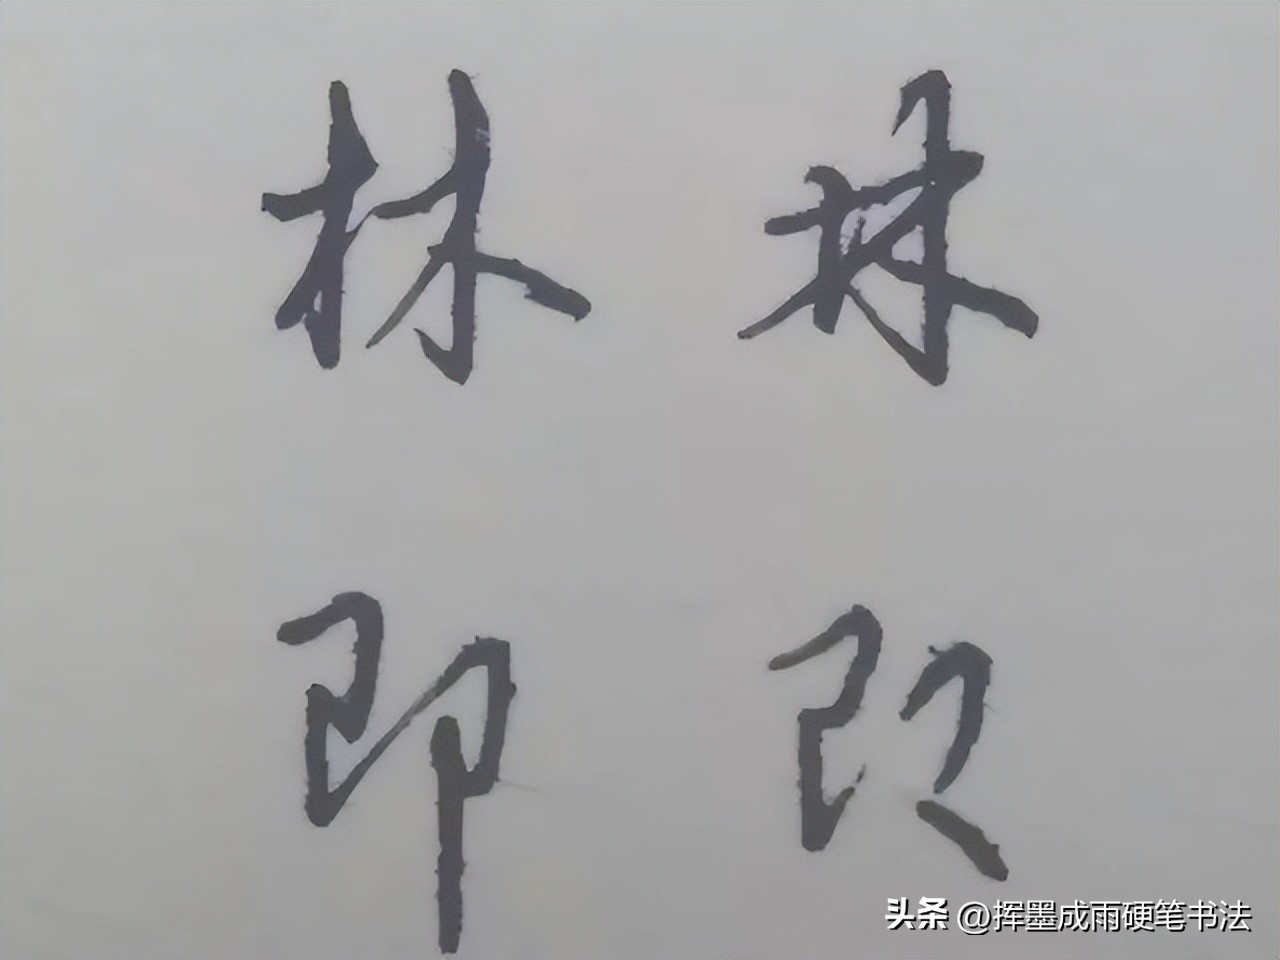 林 林
即 即
头条 @挥墨成雨硬笔书法